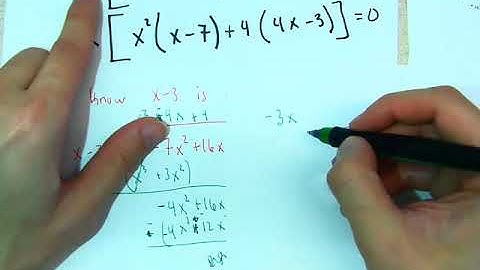 [ x²(x-7)+4(4x-3)]=0
know x-3 is
-4x+4
-3x
7x²+16x
x³+3x²)
-4x²+16x
-4x² 12x